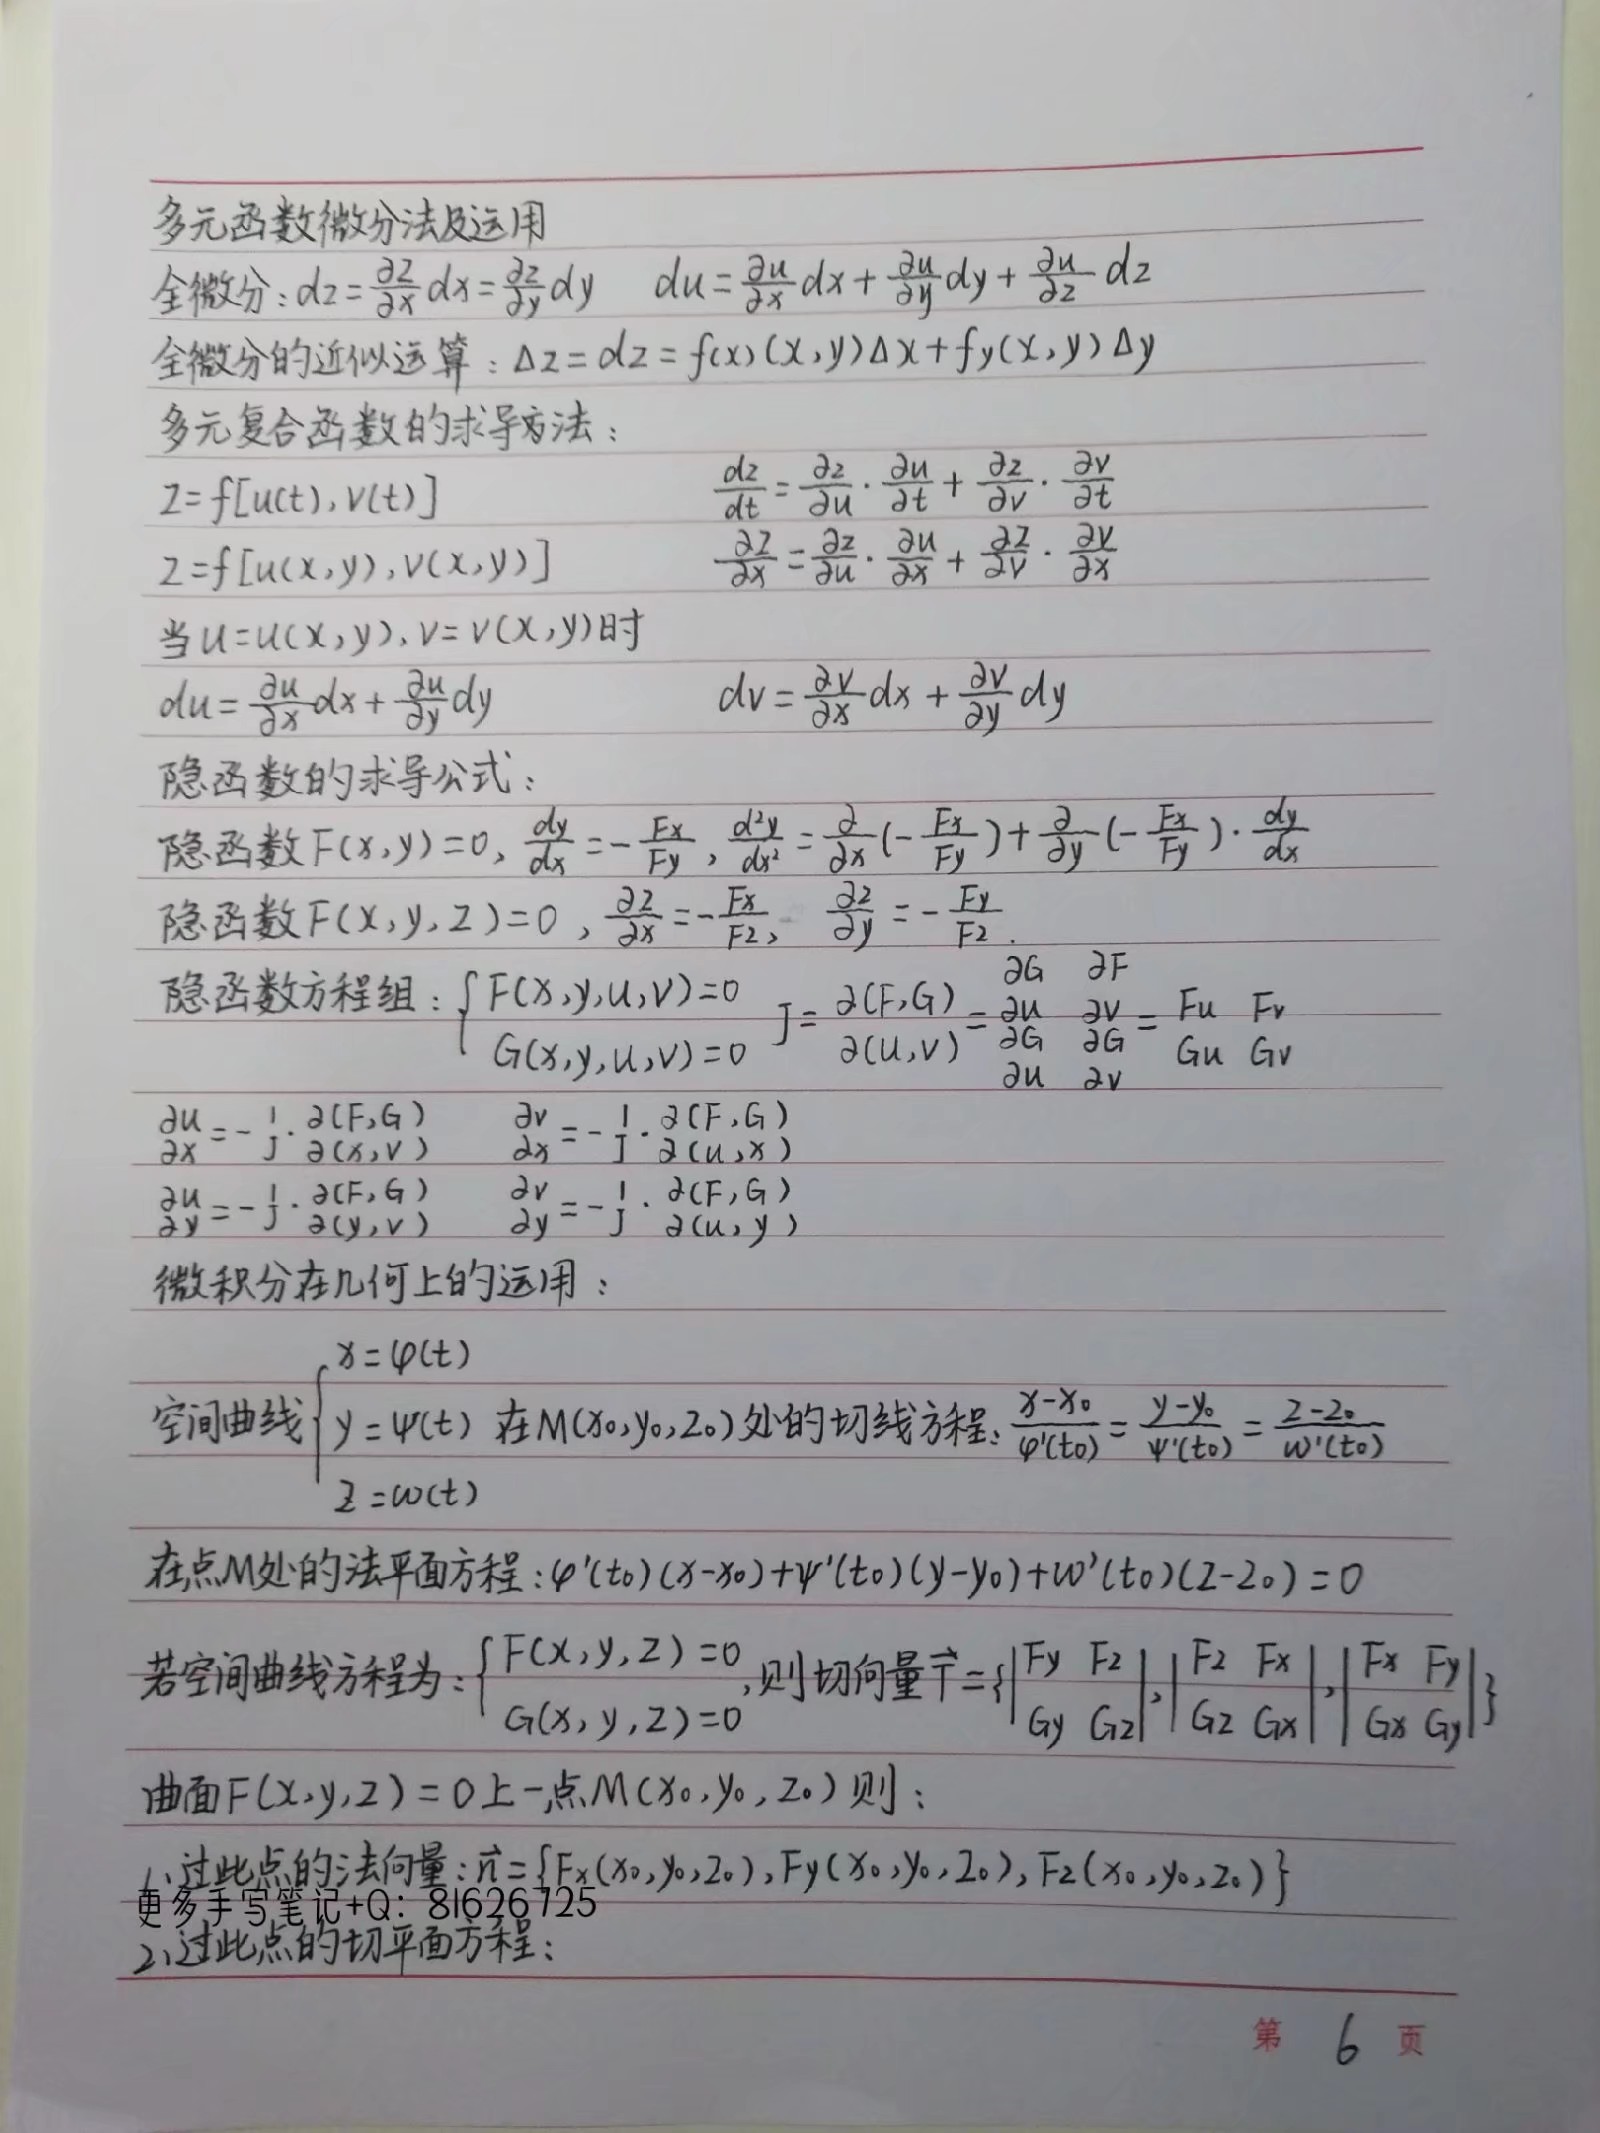 多元函数微分法及运用
全微分:dz=∂z/∂x dx=∂z/∂y dy du=∂u/∂x dx+∂u/∂y dy+∂u/∂z dz
全微分的近似运算:Δz=dz=f(x)(x,y)Δx+fy(x,y)Δy
多元复合函数的求导方法:
z=f[u(t),v(t)] dz/dt=∂z/∂u·∂u/∂t+∂z/∂v·∂v/∂t
z=f[u(x,y),v(x,y)] ∂z/∂x=∂z/∂u·∂u/∂x+∂z/∂v·∂v/∂x
当u=u(x,y),v=v(x,y)时
du=∂u/∂x dx+∂u/∂y dy dv=∂v/∂x dx+∂v/∂y dy
隐函数的求导公式:
隐函数F(x,y)=0,dy/dx=-Fx/Fy,d²y/dx²=∂/∂x(-Fx/Fy)+∂/∂y(-Fx/Fy)·dy/dx
隐函数F(x,y,z)=0,∂z/∂x=-Fx/Fz, ∂z/∂y=-Fy/Fz.
隐函数方程组:{F(x,y,u,v)=0 G(x,y,u,v)=0 J=∂(F,G)/∂(u,v)=∂G/∂u ∂F/∂v ∂G/∂u ∂G/∂v=Fu Fv Gu Gv
∂u/∂x=-1/J·∂(F,G)/∂(x,v) ∂v/∂x=-1/J·∂(F,G)/∂(u,x)
∂u/∂y=-1/J·∂(F,G)/∂(y,v) ∂v/∂y=-1/J·∂(F,G)/∂(u,y)
微积分在几何上的运用:
x=φ(t)
空间曲线{y=ψ(t) 在M(x₀,y₀,z₀)处的切线方程:x-x₀/φ'(t₀)=y-y₀/ψ'(t₀)=z-z₀/ω'(t₀)
z=ω(t)
在点M处的法平面方程:φ'(t₀)(x-x₀)+ψ'(t₀)(y-y₀)+ω'(t₀)(z-z₀)=0
若空间曲线方程为:{F(x,y,z)=0 G(x,y,z)=0,则切向量T⃗={|Fy Fz Gy Gz|,|Fz Fx Gz Gx|,|Fx Fy Gx Gy|}
曲面F(x,y,z)=0上一点M(x₀,y₀,z₀)则:
1、过此点的法向量:n⃗={Fx(x₀,y₀,z₀),Fy(x₀,y₀,z₀),Fz(x₀,y₀,z₀)}
更多手写笔记+Q: 81626725
2、过此点的切平面方程:
第 6 页